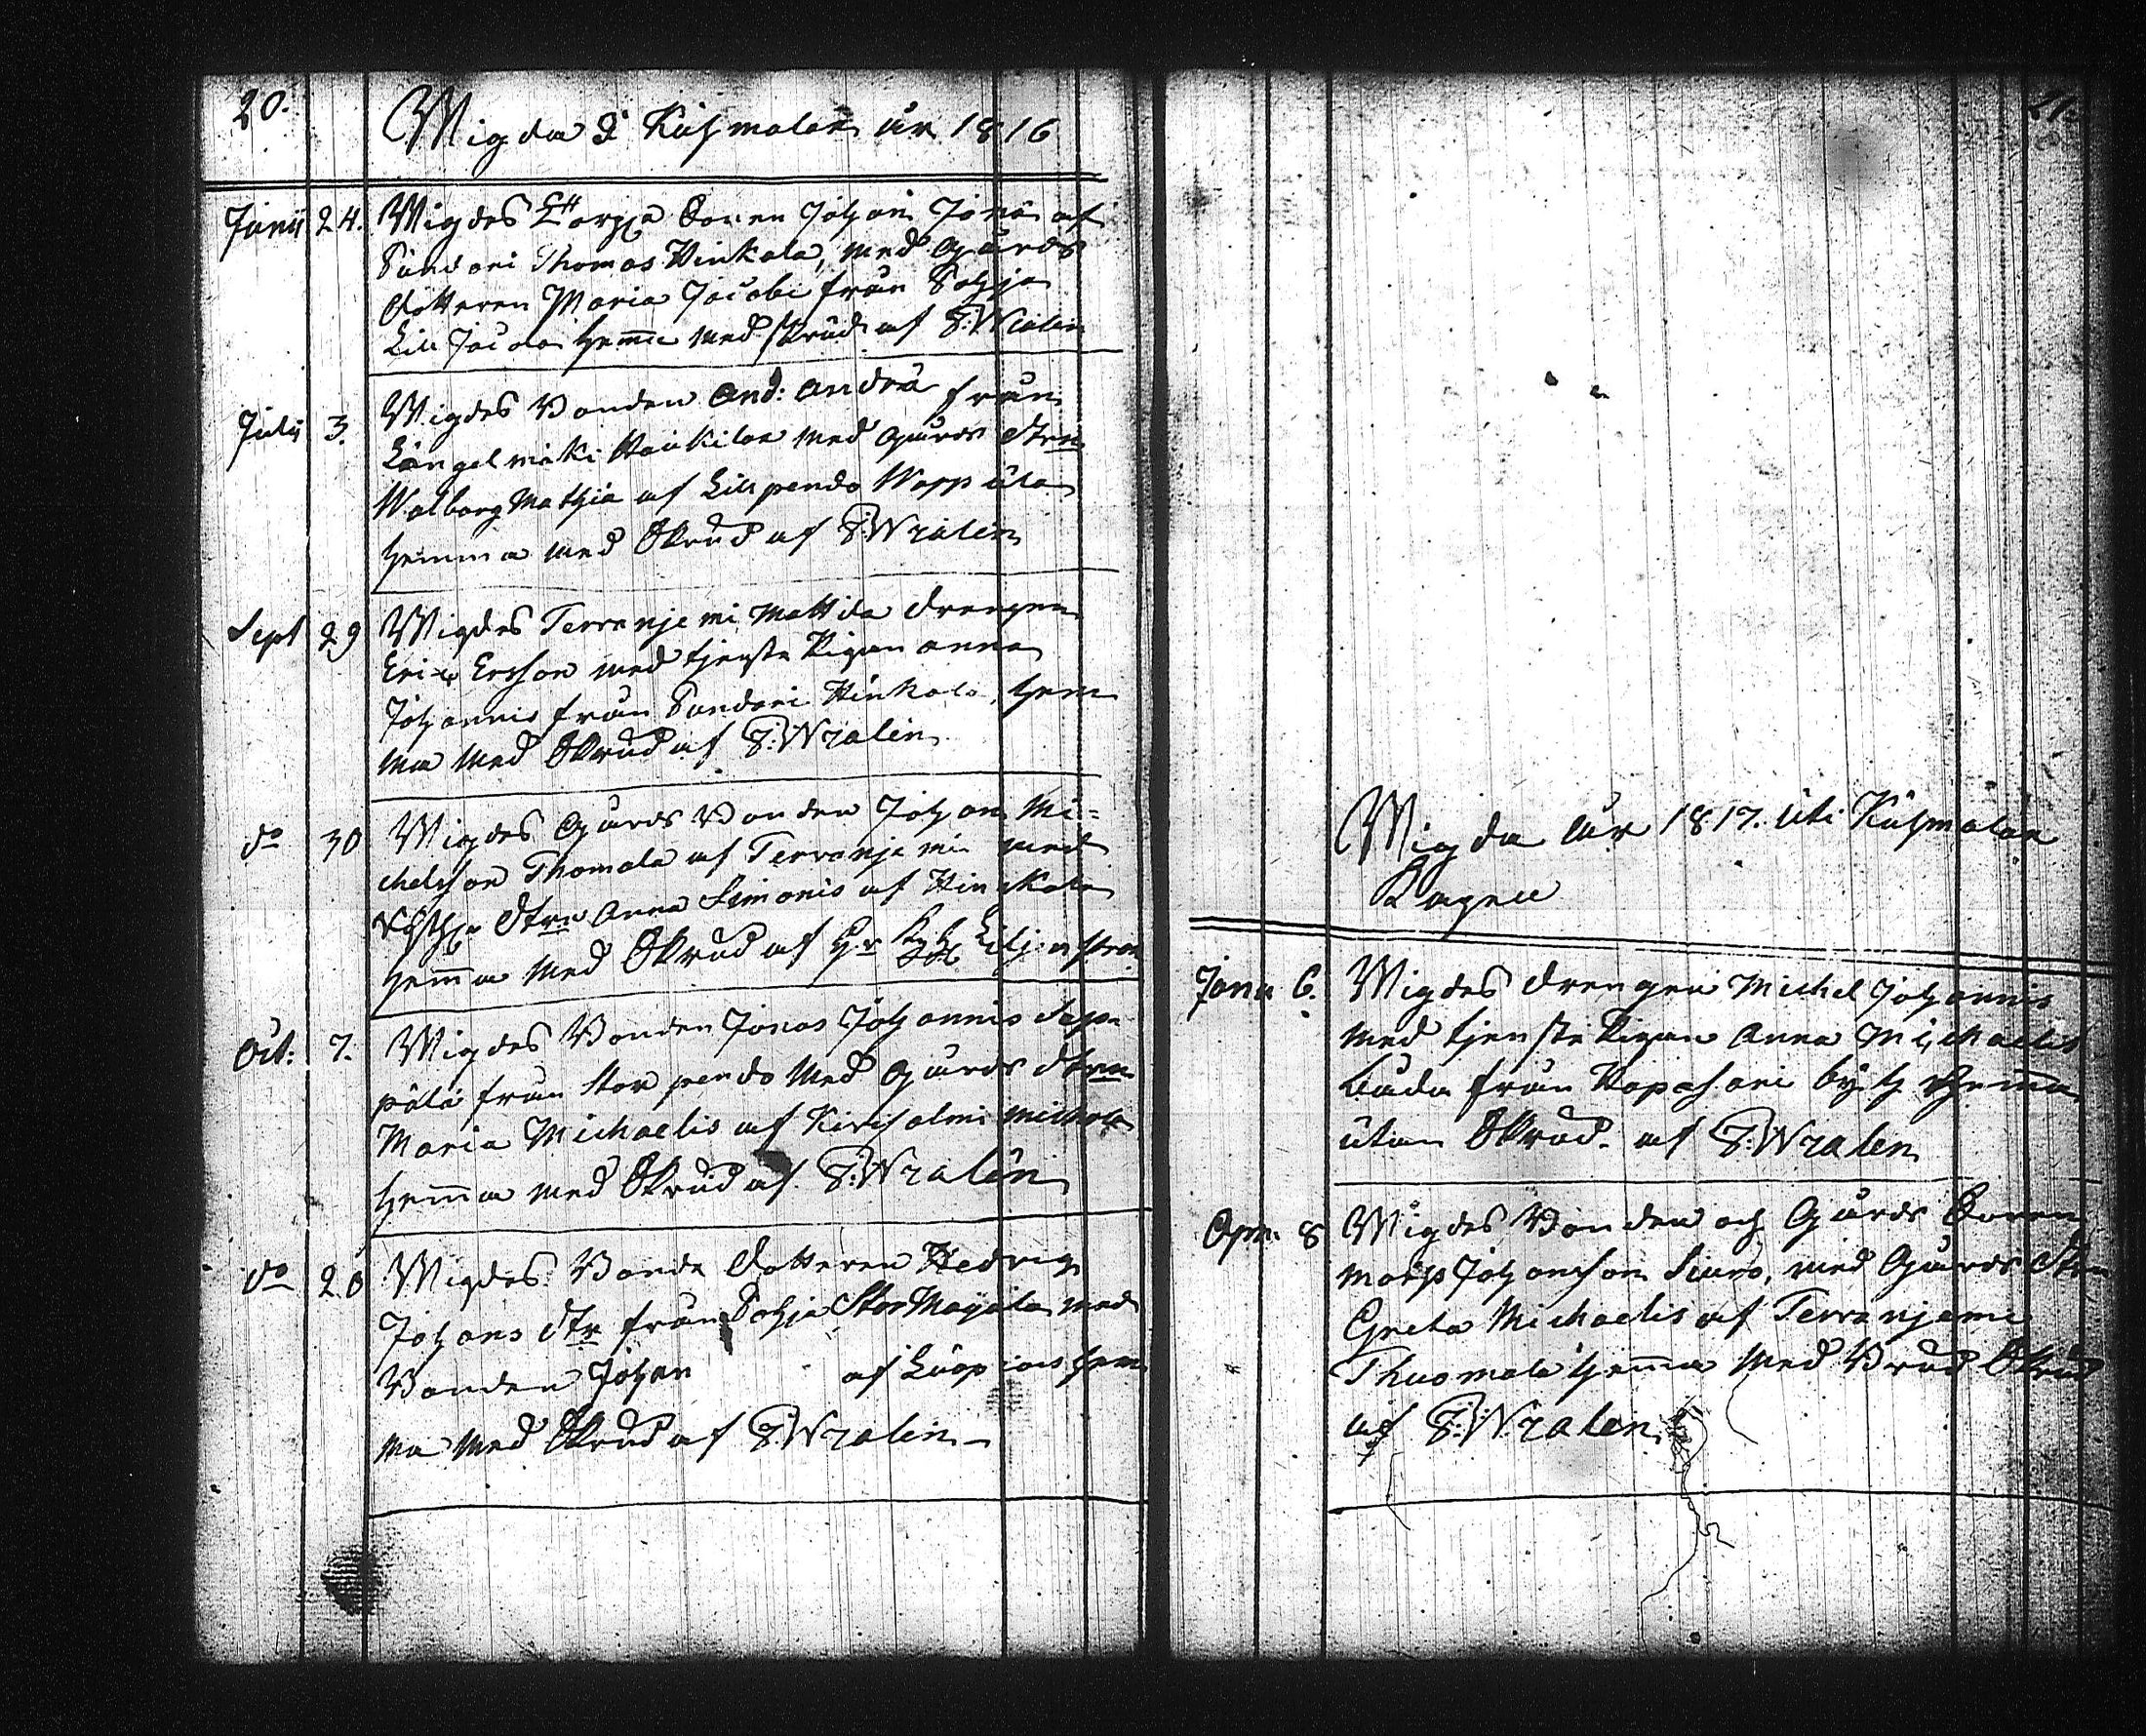 20.
Wigda i Kuhmalax år 1816
Junii 24. Wigdes Sonen Johan Jonæ af
Pundari Thomas Hinkala, med Gårds
dotteren Maria Jacobi från Pohja
Lill Jacola hemma med skrud af F: Wialén
Julii 3. Wigdes Bonden And: Andreæ från
Längelmäki Haukila med Gårds dtrn
Walborg Mathiæ af Lillpendo Wappula
hemma med Skrud af F: Wialén
Sept 29 Wigdes Terranjemi Mattila drengen
Eric Ersson med tjenste Pigan Anna
Johannis från Pundari Hinkala, hem
ma med Skrud af F: Wialén
do 30 Wigdes Gårds Bonden Johan Mi-
chelsson Thomola af Terranjemi med
dtrn Anna Simonis af Hinckala
hemma med Skrud af Hr
Oct: 7. Wigdes Bonden Jonas Johannis Sep-
pälä från Stor pendo med Gårds dtrn
Maria Michaelis af Kirisalmi
hemma med Skrud af F: Wialén
do 20 Wigdes Bonde dotteren Hedvig
Johans dtr från Pohja Stor Maijala med
Bonden Johan af Luopiois hem
ma med Skrud af F: Wialén
21.
Wigda åur 1817. uti Kuhmalax
Janu 6. Wigdes drengen Michel Johannis
med tjenste Pigan Anna Michaelis
båda från Hapasari by hemma
utan Skrud. af F: Wialen
Apr. 8 Wigdes Bonden och Gårds Sonen
Johansson Siuro, med Gårds dtrn
Greta Michaelis af Terranjemi
Thuomala hemma med Brud Skrud
af F: Wialen